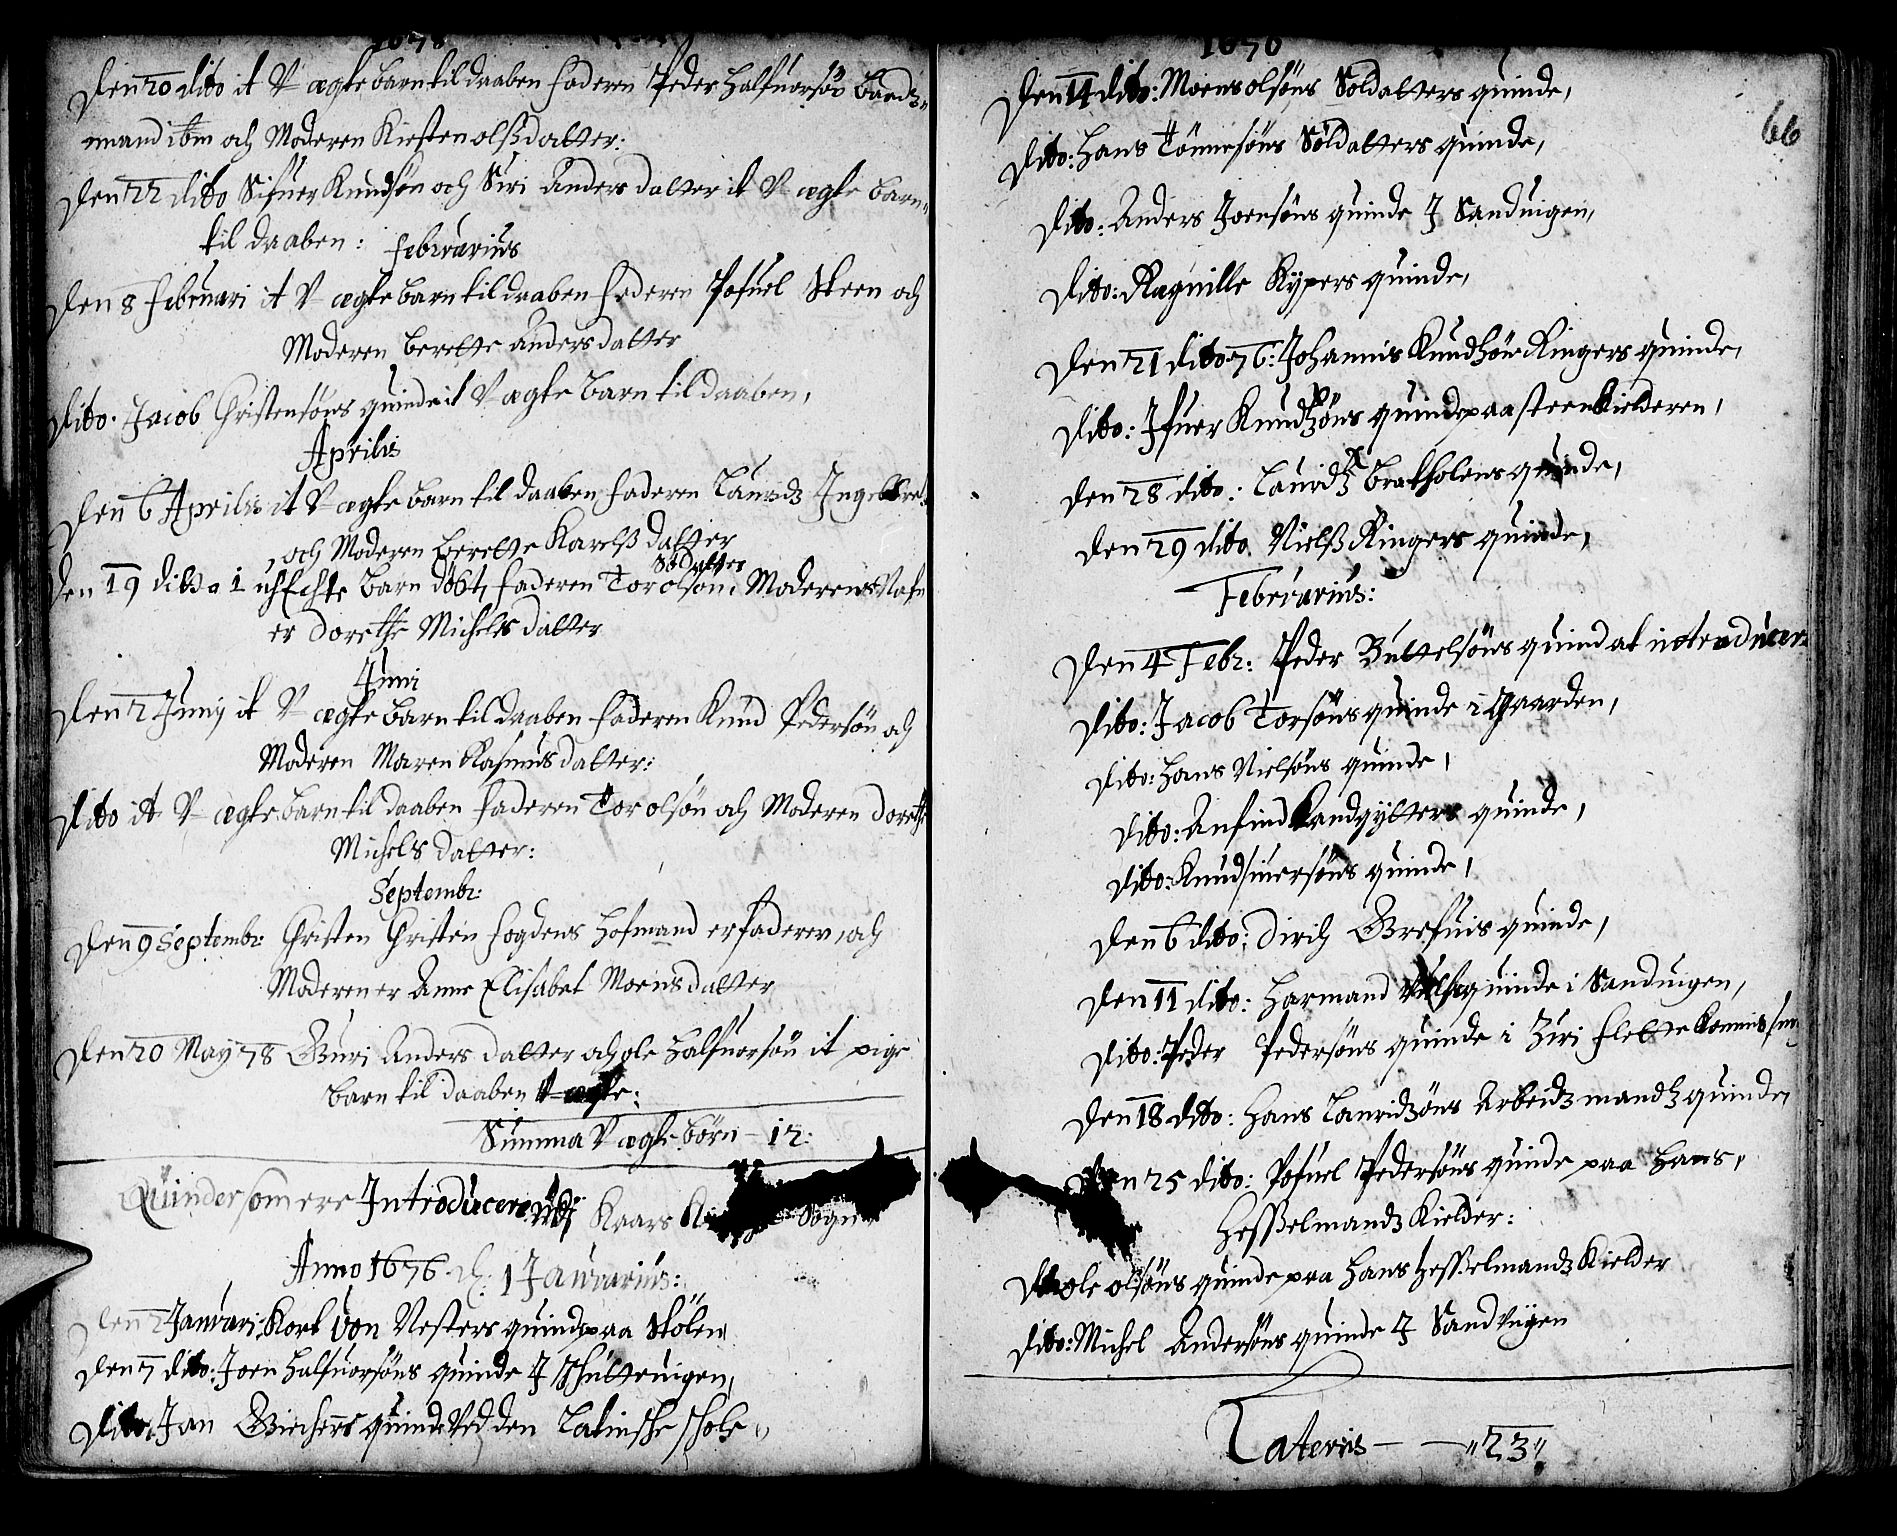 1678
Den 20 dito it V-ægte barn til daaben faderen Peder Halfuorsøn Baadz-
mand ibm och Moderen Kirsten olßdatter:
Den 22 dito Sifuer Knudsøn och Siri Anders datter it V-ægte barn
til daaben:
Februarius
Den 8 Februari it V-ægte barn til daaben faderen Pofuel Steen och
Moderen Berette Anders datter
Dito. Jacob Christensøns quinde it V-ægte barn til daaben,
Aprilis
Den 6 Aprilis it V-ægte barn til daaben, faderen Lauridz Ingelbret
och Moderen Berette Karelß datter
Soldatter
Den 19 ditto 1 uhEchte barn döbt, faderen Tor olsøn, Moderens Nafn
er Dorethe Michels datter
Juni
Den 2 Junij it V-ægte barn til daaben faderen Knud Pedersøn och
Moderen Maren Rasmus datter:
Dito it V-ægte barn til daaben faderen Tor olsøn och Moderen Dorethe
Michels datter:
Septembr:
Den 9 Septembr: Christen Christen fogdens hofmand er faderen, och
Moderen er Anne Elisabet Moens datter
Den 20 May 78 Guri Anders datter och ole Halfuorsøn it pige
barn til daaben V-ægte:
Summa V-ægte börn - 12:
Quinder som ere Introducerede udj Kaars Sogn
Anno 1676 1 Januarius:
Den 2 Januari: Kort von Vesters quinde paa Stölen
Den 7 dito: Joen Halfuorsøns quinde J Schutteuigen,
Dito: Jan quinde Ved den Latinsche schole,
1676
66
Den 14 dito: Moens olsøns Soldatters quinde,
Dito: Hans Tönnesøns Soldatters quinde,
Dito: Anders Joensøns quinde J Sanduigen,
Dito: Ragnille Kypers quinde,
Den 21 dito 76: Johannis Knudzøn Ringers quinde,
Dito: Ifuer Knudzöns quinde paa steen Kielderen,
Den 28 dito: Lauridz Bratholens quinde,
Den 29 dito. Nielß Ringers quinde,
Februarius:
Den 4 Febr: Peder Buttelsøns quind at introducere
Dito: Jacob Torsøns quinde i Gaarden,
Dito: Hans Nielsøns quinde,
Dito: Anfind Kandgytters quinde,
Dito: Knud siuersøns quinde,
Den 6 dito: Dirich Grefuis quinde,
Den 11 dito: Harmand quinde i Sanduigen,
Dito: Peder Pedersøns quinde i Ziri
Den 18 dito: Hans Lauridzöns Arbeidz mandz quinde,
Den 25 dito: Pofuel Pedersøns quinde paa Hans,
Hesßelmandz Kielder:
Dito ole olsøns quinde paa Hans Hesßelmandz Kielder
Dito: Michel Andersøns quinde J Sandvigen
Lateris - - 23